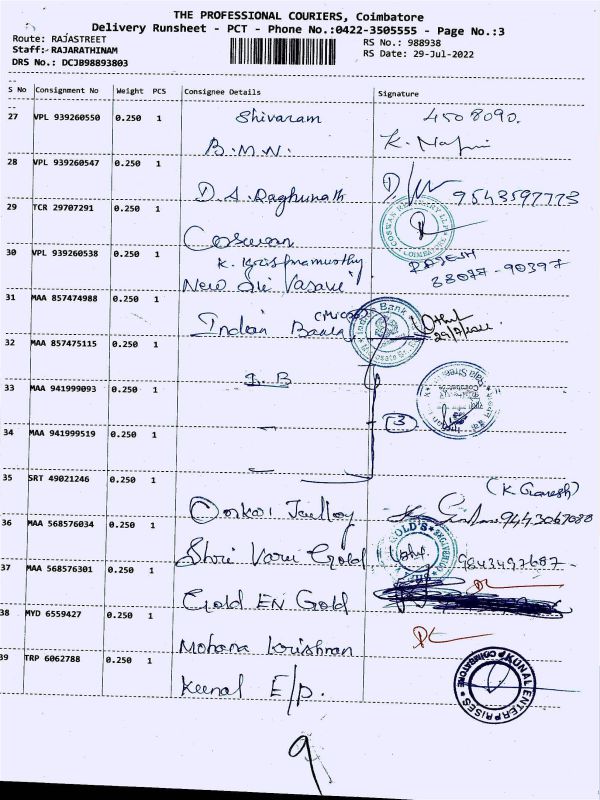 THE PROFESSIONAL COURIERS, Coimbatore
Delivery Runsheet - PCT - Phone No.:0422-3505555 - Page No.:3
Route: RAJASTREET
RS No.: 988938
Staff: RAJARATHINAM
RS Date: 29-Jul-2022
DRS No.: DCJB98893803
S No Consignment No Weight PCS Consignee Details Signature
27 VPL 939260550 0.250 1 Shivaram 4508090.
B.M.N.
28 VPL 939260547 0.250 1
D.A. Raghunath 9543597773
29 TCR 29707291 0.250 1
Coswan
30 VPL 939260538 0.250 1 K. Krishnamurthy RAJESH
New Sri Vasavi 38077-90397
31 MAA 857474988 0.250 1
Indian Bank
29/7/2022
32 MAA 857475115 0.250 1
I.B
33 MAA 941999093 0.250 1
3
34 MAA 941999519 0.250 1
35 SRT 49021246 0.250 1 (K Ganesh)
36 MAA 568576034 0.250 1
Shri Varu Gold 9843497687-
37 MAA 568576301 0.250 1
Gold EN Gold
38 MYD 6559427 0.250 1
Mohana Krishnan
39 TRP 6062788 0.250 1
Kunal E/p.
KUNAL ENTERPRISES
COIMBATORE
9